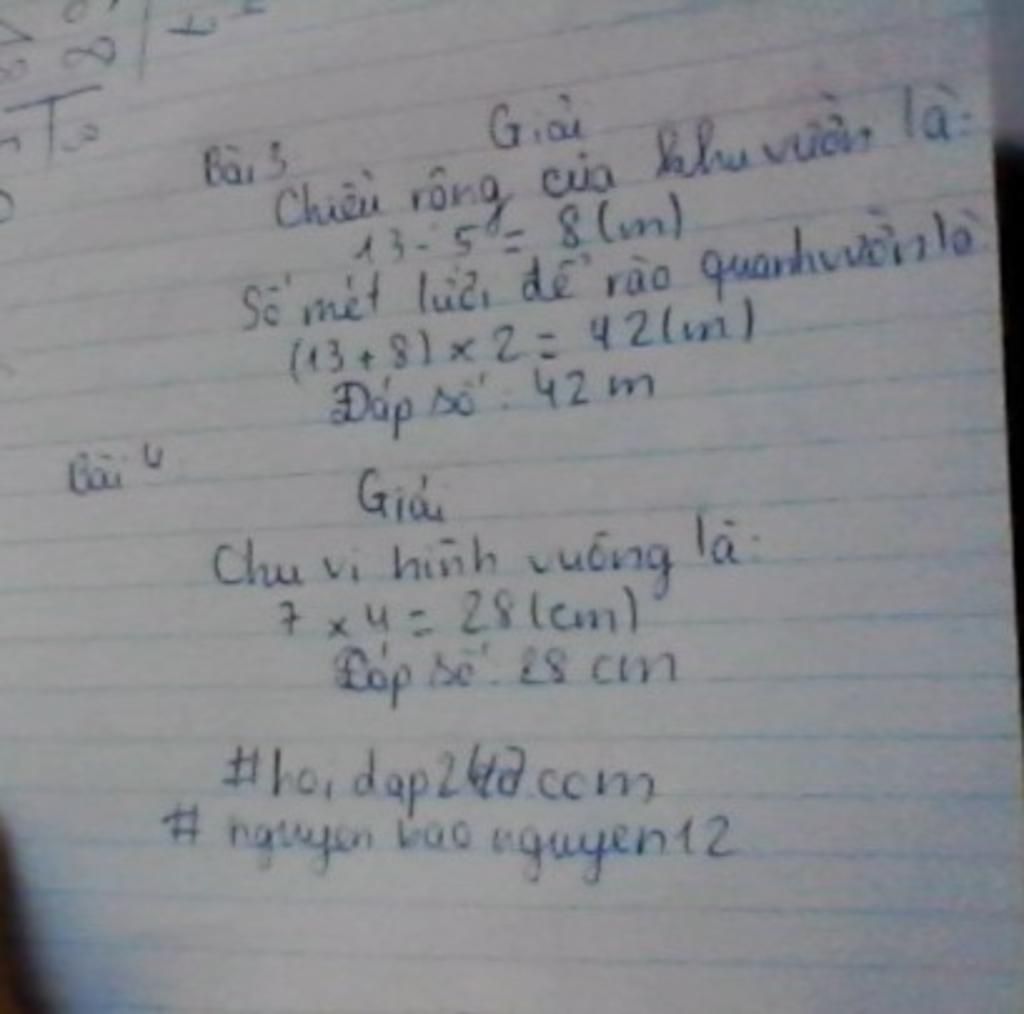 Giải
Bài 3
Chiều rộng của khu vườn là:
13 - 5 = 8 (m)
Số mét lưới để rào quanh vườn là
(13 + 8) × 2 = 42 (m)
Đáp số: 42 m
Bài 4
Giải
Chu vi hình vuông là:
7 × 4 = 28 (cm)
Đáp số: 28 cm
#hoidap247.com
# nguyen bao nguyen12